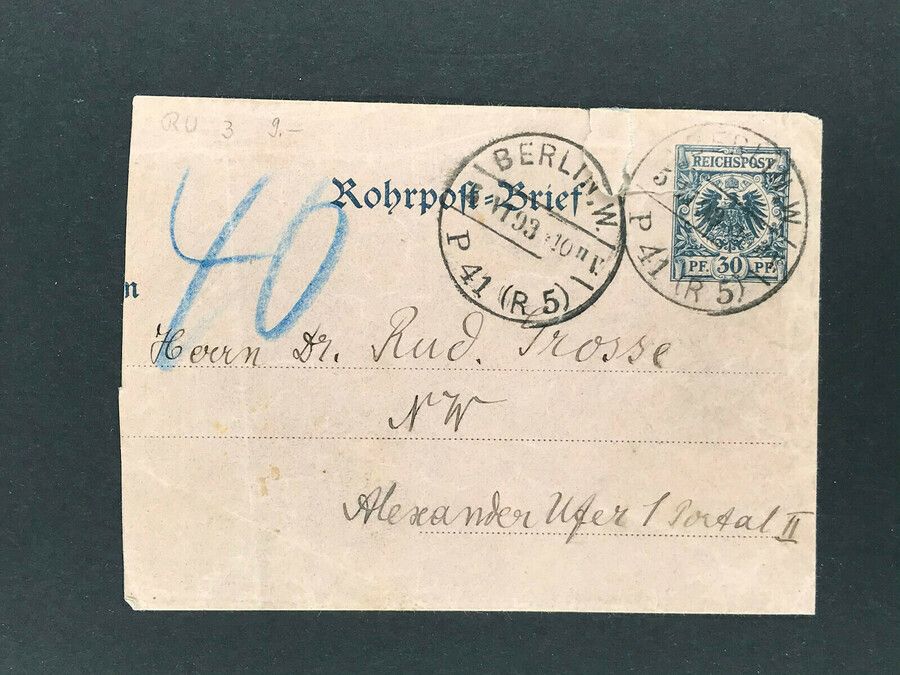 RU 3 9.-
Rohrpost-Brief
REICHSPOST
PF. 30 PF.
BERLIN. W.
93 10
P 41 (R 5)
W.
P 41 (R 5)
40
n
Herrn Dr. Rud. Grosse
NW
Alexander Ufer 1 Portal II